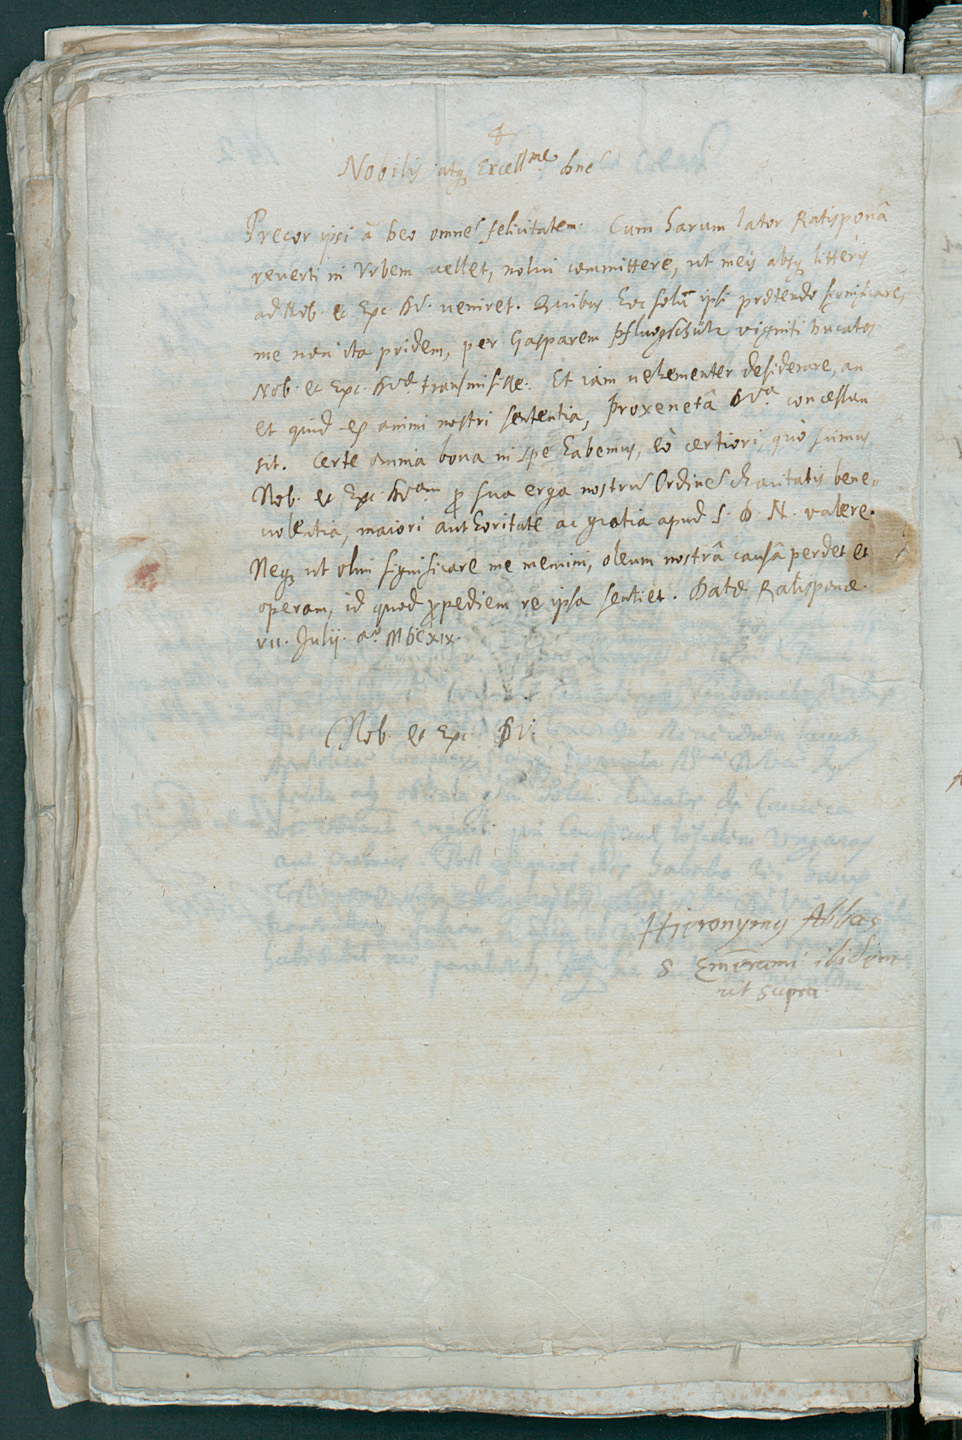 Nobilis atq Excell.me dne
Precor ipsi â Deo omne felicitatem. Cum harum lator Ratisponâ
reverti in Urbem vellet, nolui committere, ut meis absq litteris
ad Nob. et Exc. DV. veniret. Quibus hoc solũ ipsi prætendo significare,
me non ita pridem, per Gasparem viginti Ducatos
Nob. et Exc. DVæ transmisisse. Et iam vehementer desiderare, an
et quid ex animi nostri sententia, Proxenetâ DVa concessum
sit. Certe omnia bona in spe habemus, eò certiori, quò scimus
Nob. et Exc. DVam p sua erga nostrũ Ordinẽ charitatis bene=
volentia, maiori authoritate ac gratia apud S. D. N. valere.
Neq ut olim significare me memini, oleum nostrâ causâ perdet et
operam, id quod ppediem re ipsa sentiet. Datæ Ratisponæ.
VII. Julij. aº. MDCXIX.
Nob. et Exc. DV.
Hieronymus Abbas
S. Emerami ibidem
ut supra.